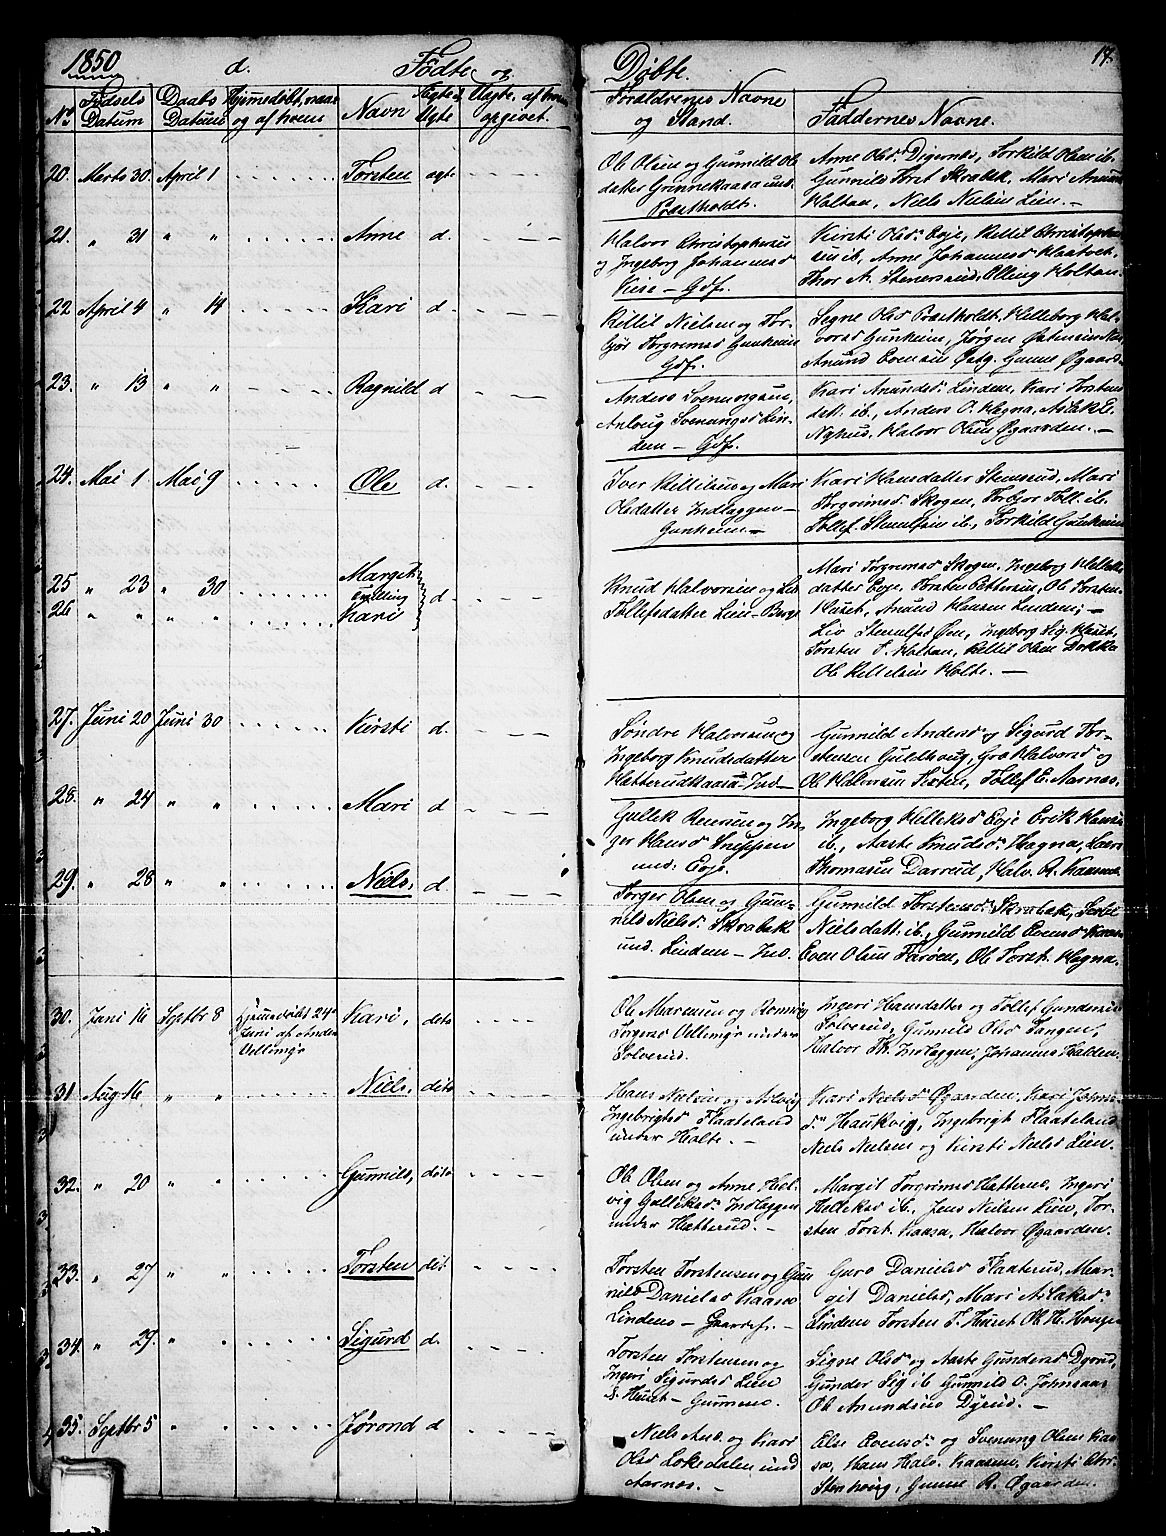 1850 d. Födte og Döbte. 17.
No Födsels Datum Daabs Datum Hjemmedöbt, naar og af hvem Navn Ægte, Uægte Uægte, af hvem opgivet. Forældrenes Navne og Stand. Faddernes Navne.
20. Marts 30. April 1 Torsten ægte
Ole Olsen og Gunnild Ols
datter Grinnekaasa und.
Præstholdt.
Anne Olsdr Digernæs, Torkild Olsen ib.
Gunnild Torst. Skrabek, Mari Anund
Holtan, Niels Nielsen Lien. —
21. " 31 " " Anne d.
Halvor Christophersen
og Ingeborg Johannesd
— Gdf.
Kirsti Olsdr Evje, Kittil Christophersen
ib, Anne Johannesd
Thor A. Stenersrud, Elling Holtan.
22 April 4 " 14 Kari d.
Kittil Nielsen og Tor-
björ Torgrimsd Gunheim
Gdf.
Signe Olsd Præstholdt, Helleborg Hal-
vorsd Gunheim, Jörgen Östensen
Anund Evensen Östg. Gunne Øgaard
23. " 13 " " Ragnild d
Anders Svenungsen,
Aslaug Svenungsd Lin-
dem — Gdf.
Kari Anundsdr Lindem, Kari Torstens
datt. ib., Anders O. Hegna, Aslak E.
Nyhus, Halvor Olsen Øgaarden. —
24. Mai 1 Mai 9 Ole d.
Iver Kittilsen og Mari
Olsdatter Indlæggen
Gunheim —
Kari Hansdatter Stensrud, Mari
Torgrimsdr Skogen, Torbjör Toll. ib.
Tollef Stenulsen ib., Torkild Gunheim
25 " 23 " 30 Margit
tvilling
26 " " " " Kari d.
Knud Halvorsen og Liv
Tollefsdatter Lien — Borge
Mari Torgrimsd Skogen, Ingeborg
datter Evje, Torsten Pettersen, Ole Torsten
Huset, Anund Hansen Lindem; —
Liv Stenulfsd Øen, Ingeborg Sig. Huset,
Torsten T. Holtan, Kittil Olsen Dokka
Ole Kittelsen Holte. —
27. Juni 20 Juni 30 Kirsti d.
Söndre Halvorsen og
Ingeborg Knudsdatter
Hatterudkaasa — Ind —
Gunnild Andersdr og Sigurd Tor-
stensen Guldhaug, Gro Halvorsd og
Ole Halvorsen Tveten, Tollef E. Aarnæs.
28. " 24 " " Mari d
Gullek og In
ger Hansd
und: Evje.
Ingeborg Kittilsd Evje Erik Hansen
ib., Aaste Knudsdr Hegna, Lars
Thomasen Darrud, Halv. R. Kaasene
29. " 28 " " Niels, d.
Torger Olsen og Gun-
nild Nielsd. Skrabek
und. Lindem — Ind.
Gunnild Torstensdr Skrabek,
Nielsdatt. ib., Gunnild Evensdr Kaas
Even Olsen Faröen, Ole Torst. Hegna.
30. Juni 16 Septbr 8 Hjemmedöbt 24de
Juni af Anders
Vellemyr Kari, dito
Ole Marensen og Ronnig
Torgersd Vellemyr under
Solverud.
Ingeri Hansdatter og Tollef Gundersen
Solverud, Gunnild Olsdr Tangen,
Halvor Th. Indlæggen, Johannes Halden.
31 Aug. 16 " " Niels, dito
Hans Nielsen og Aslaug
Ingebrigtsd Flaateland
under Holte. —
Kari Nielsdr Øgaarden, Kari Johns
dr Haukvig, Ingebrigt Flaateland
Niels Nielsen og Kirsti Nielsd Lien.
32. " 20 " " Gunnild, dito
Ole Olsen og Anne Hel-
vig Gulleksdr Indlæggen
under Hatterud. —
Margit Torgrimsd Hatterud, Ingeri
Kittilsd ib., Jens Nielsen Lien, Tor-
sten Torst. Kaasa, Halvor Øgaarden.
33. " 27 " " Torsten dit
Torsten Torstensen og Gun
nild Danielsd Kaasen
Lindem — Gaardf. —
Guro Danielsd Flaterud, Mar-
git Danielsd, Mari Aslaksdr
Lindem Torsten T. Huset Ole H. Hauge
34. " 29. " " Sigurd d.
Torsten Torstensen og
Ingeri Sigurdsd Lien
S. Huset —
Signe Olsd og Aaste Gundersd Dyrud,
Gunder Sig. ib Gunnild O. Johnsaas
Ole Anundsen Dyrud. —
35. Septbr 5 " " Jörond d
Niels And. og Kari
Olsd Lokedalen und
Aarnæs. —
Else Evensdr og Svenung Olsen Kaa-
sa, Hans Halv. Kaasene, Kirsti Chr.
Stenhoug, Gunne R. Øgaarden.